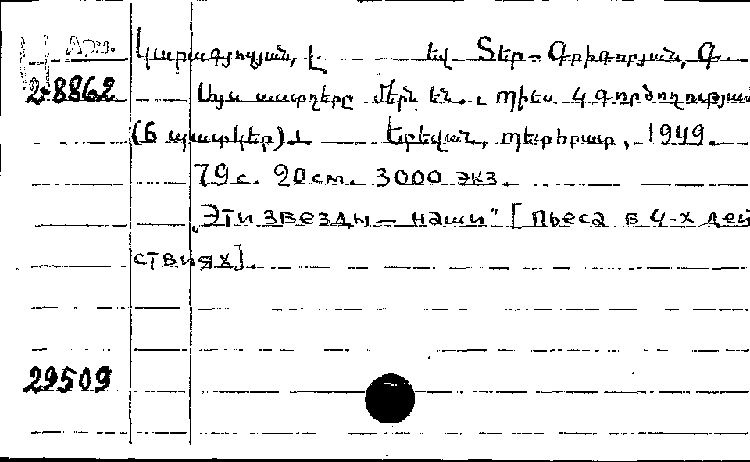 Կարագյոզյան, Լ. եվ Տեր-Գրիգորյան, Գ.
2-8862 Այս աստղերը մերն են.. Պիես 4 գործողության
(6 պատկեր). Երեվան, պետհրատ, 1949.
79 с. 20 см. 3000 экз.
„Эти звезды — наши" [Пьеса в 4-х дей
ствиях].
29509